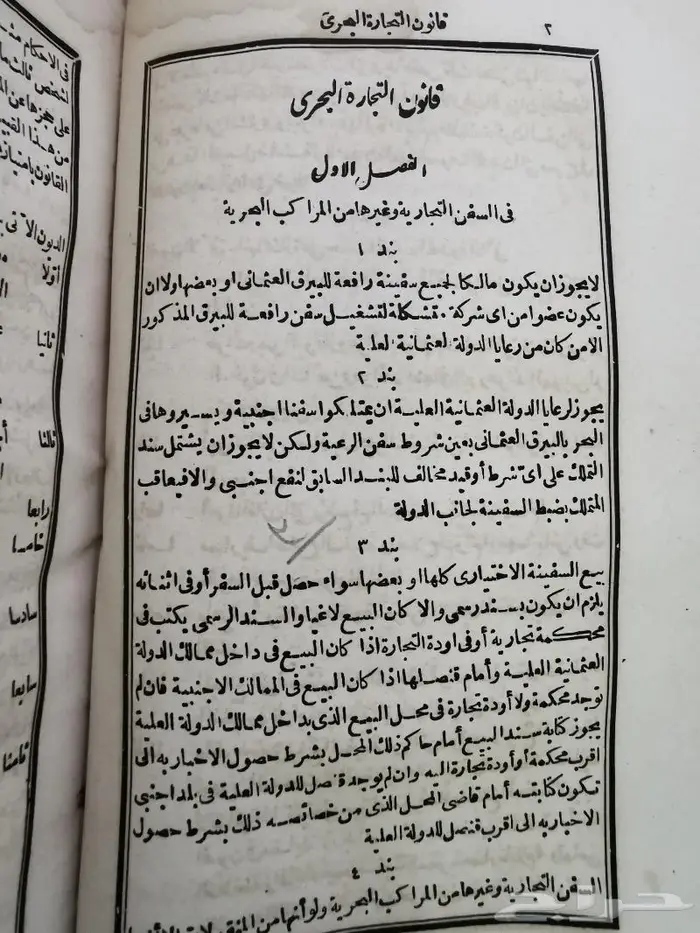 ٢
قانون التجارة البحرى
قانون التجارة البحرى
الفصل الاول
فى السفن التجارية وغيرها من المراكب البحرية
بند ١
لايجوز ان يكون مالكا لجميع سفينة رافعة للبيرق العثمانى او بعضها ولا ان
يكون عضوا من اى شركة متشكلة لتشغيل سفن رافعة للبيرق المذكور
الا من كان من رعايا الدولة العثمانية العلية
بند ٢
يجوز لرعايا الدولة العثمانية العلية ان يمتلكوا سفنا اجنبية ويسيروها فى
البحر بالبيرق العثمانى بعين شروط سفن الرعية ولكن لايجوز ان يشتمل سند
التملك على اى شرط أو قيد مخالف للبند السابق لنفع اجنبى والا فيعاقب
المتملك بضبط السفينة لجانب الدولة
بند ٣
بيع السفينة الاختيارى كلها او بعضها سواء حصل قبل السفر أو فى اثنائه
يلزم ان يكون بسند رسمى والا كان البيع لاغيا والسند الرسمى يكتب فى
محكمة تجارية أو فى اودة التجارة اذا كان البيع فى داخل ممالك الدولة
العثمانية العلية وأمام قنصلها اذا كان البيع فى الممالك الاجنبية فان لم
توجد محكمة ولا أودة تجارة فى محل البيع الذى بداخل ممالك الدولة العلية
يجوز كتابة سند البيع أمام حاكم ذلك المحل بشرط حصول الاخبار به الى
اقرب محكمة أو أودة تجارة اليه وان لم يوجد قنصل للدولة العلية فى بلد اجنبى
تكون كتابته أمام قاضى المحل الذى من خصائصه ذلك بشرط حصول
الاخبار به الى اقرب قنصل للدولة العلية
بند ٤
السفن التجارية وغيرها من المراكب البحرية ولو أنها من المنقولات
فى الاحكام
لشخص ثالث
على حجزها عن
من هذا
القانون بامتياز
الديون الآتى
أولا
ثانيا
ثالثا
رابعا
خامسا
سادسا
سابعا
ثامنا
حراج